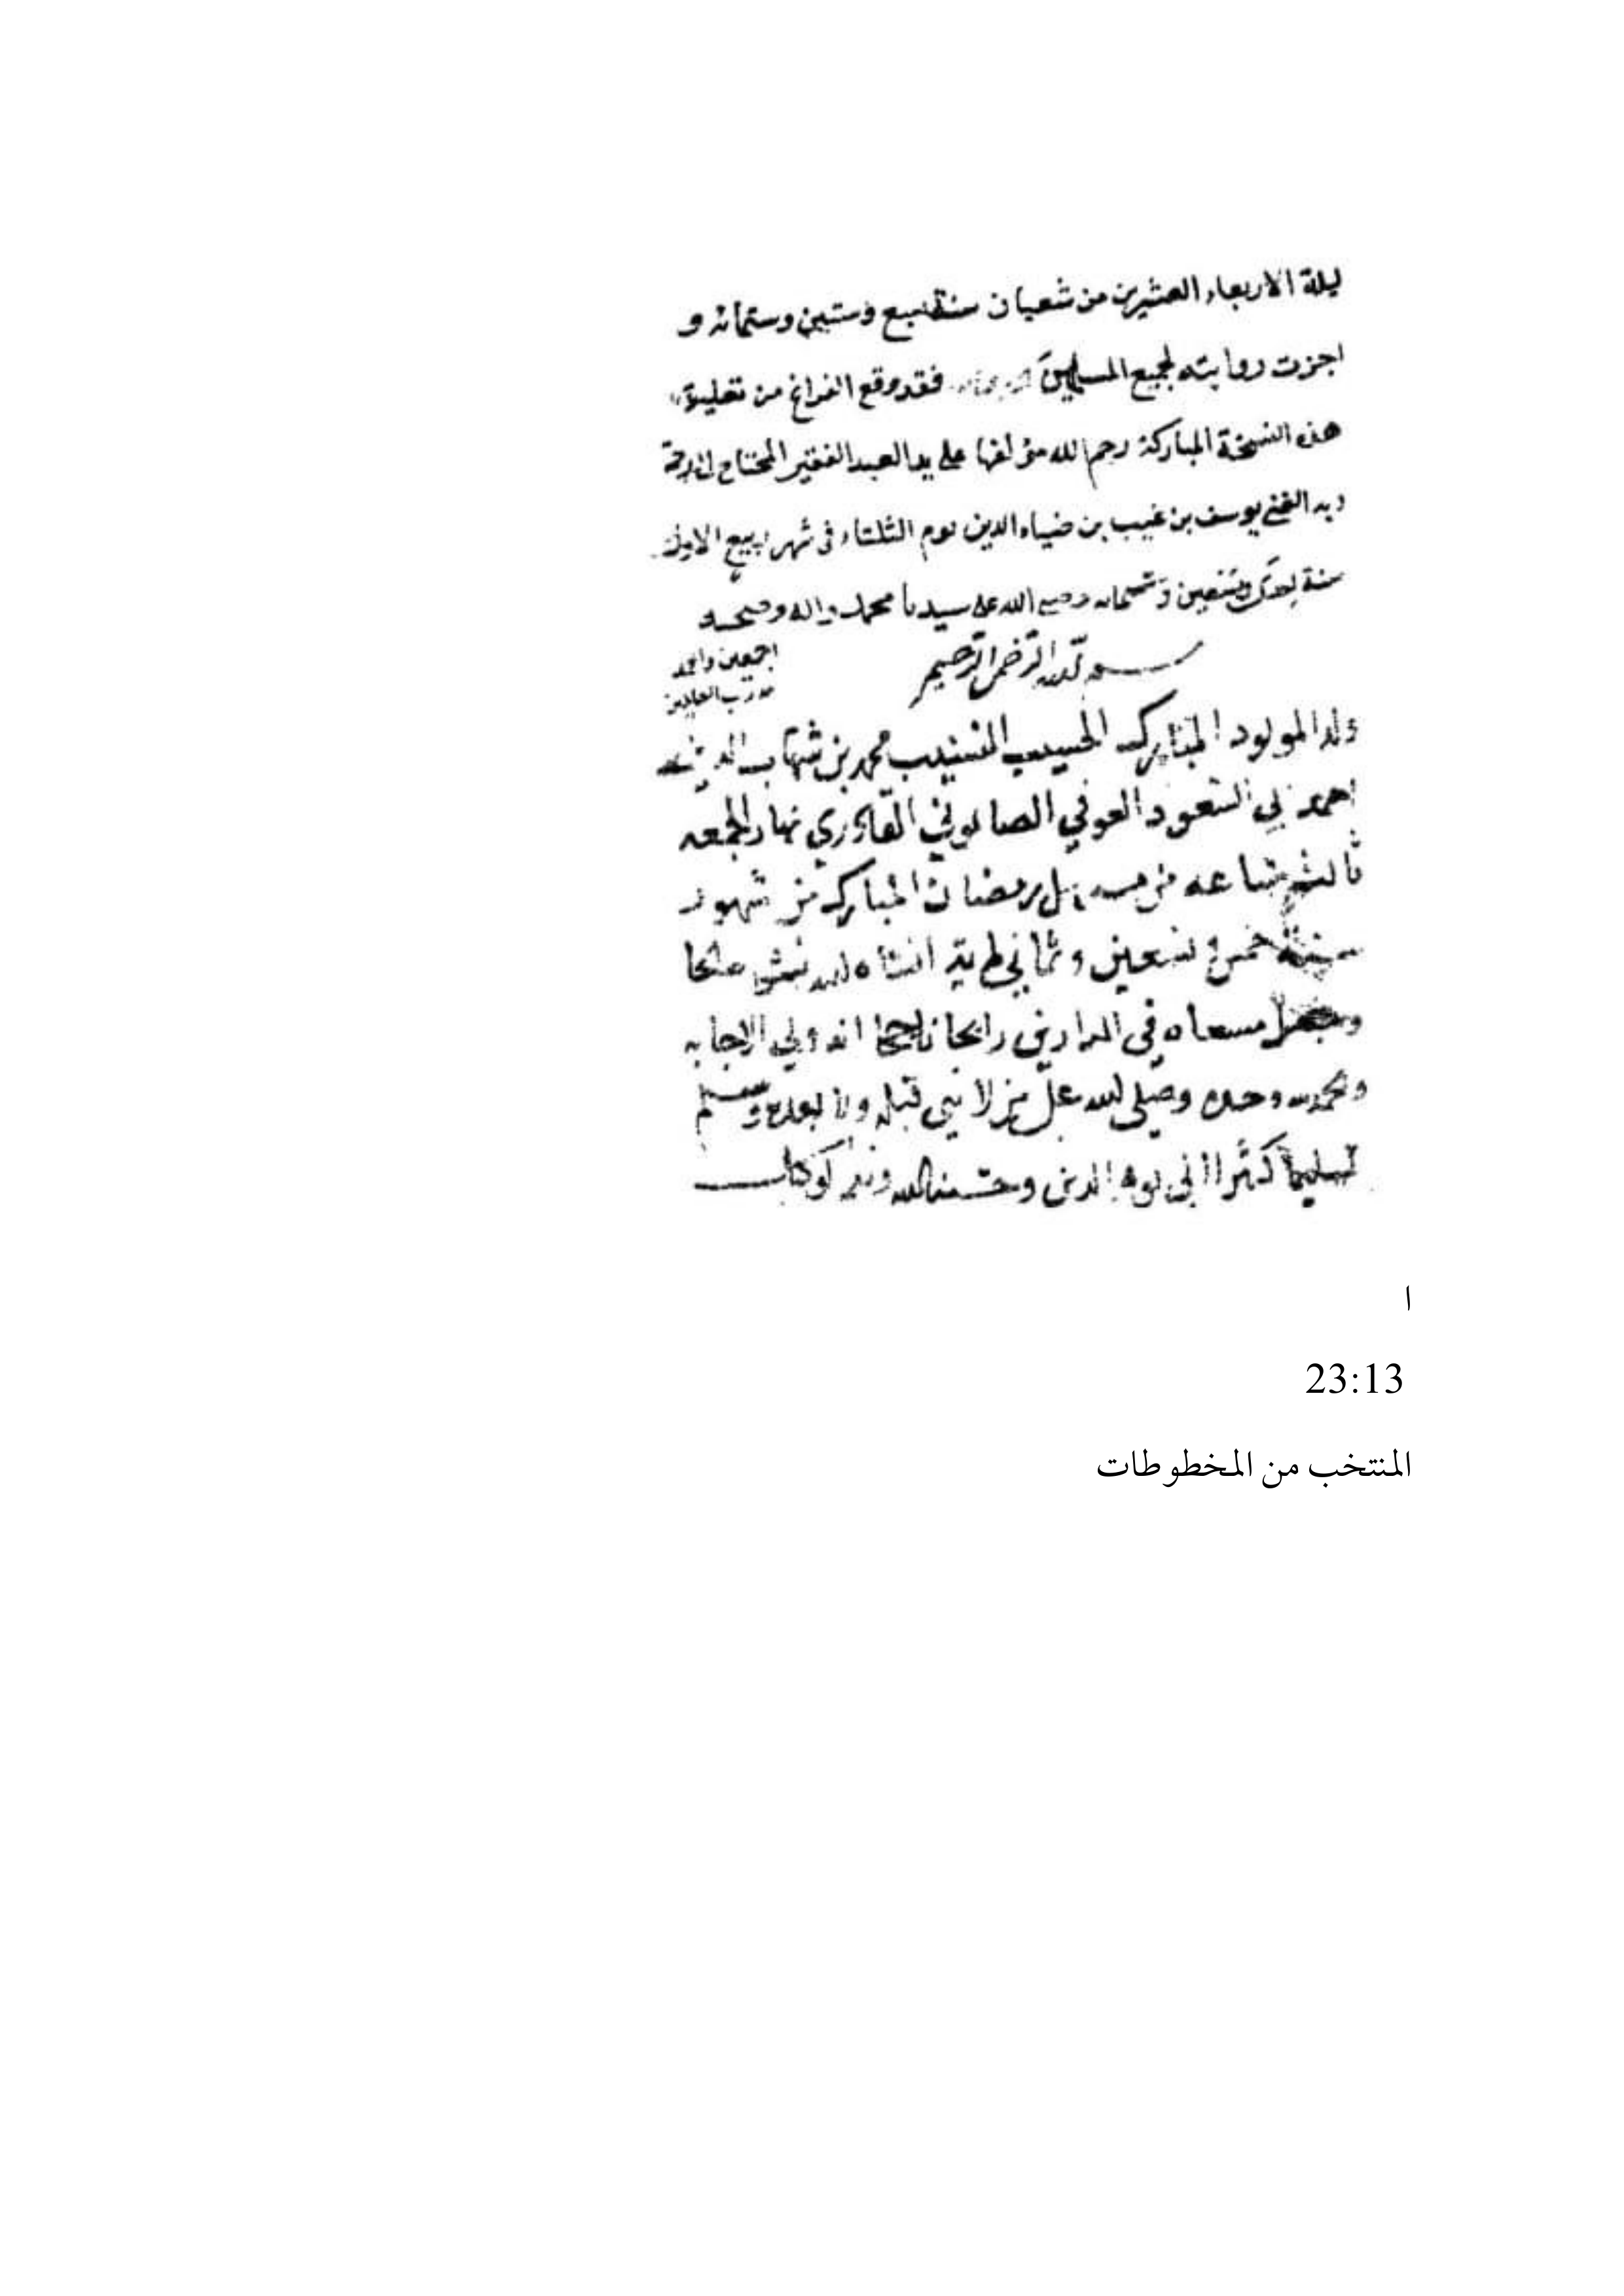 ليلة الاربعاء العشرين من شعبان سنة سبع وستين وستمائه و
اجزت روايته لجميع المسلمين فقد وقع الفراغ من تعليق
هذه النسخة المباركة رحم الله مؤلفها على يد العبد الفقير المحتاج الى رحمة
ربه الغني يوسف بن غيب بن ضياء الدين يوم الثلثاء فى شهر ربيع الاول
سنة وتسمائه وصلى الله على سيدنا محمد واله وصحبه
اجمعين والحمد
لله رب العالمين
بسم الله الرحمن الرحيم
ولد المولود المبارك الحسيب النسيب محمد بن شهاب الدين
احمد بن ابي السعود العوفي القادري نهار الجمعه
ثالث ساعه من رمضان المبارك من شهور
سنة خمس وتسعين وثماني انشاه الله صالحا
وجعل مسعاه في الدارين رابحا ناجحا انه ولي الاجابه
والحمد لله وحده وصلى الله على من لا نبي قبله ولا بعده وسلم
تسليما كثيرا الى يوم الدين وحسبنا الله ونعم الوكيل
ا
23:13
المنتخب من المخطوطات